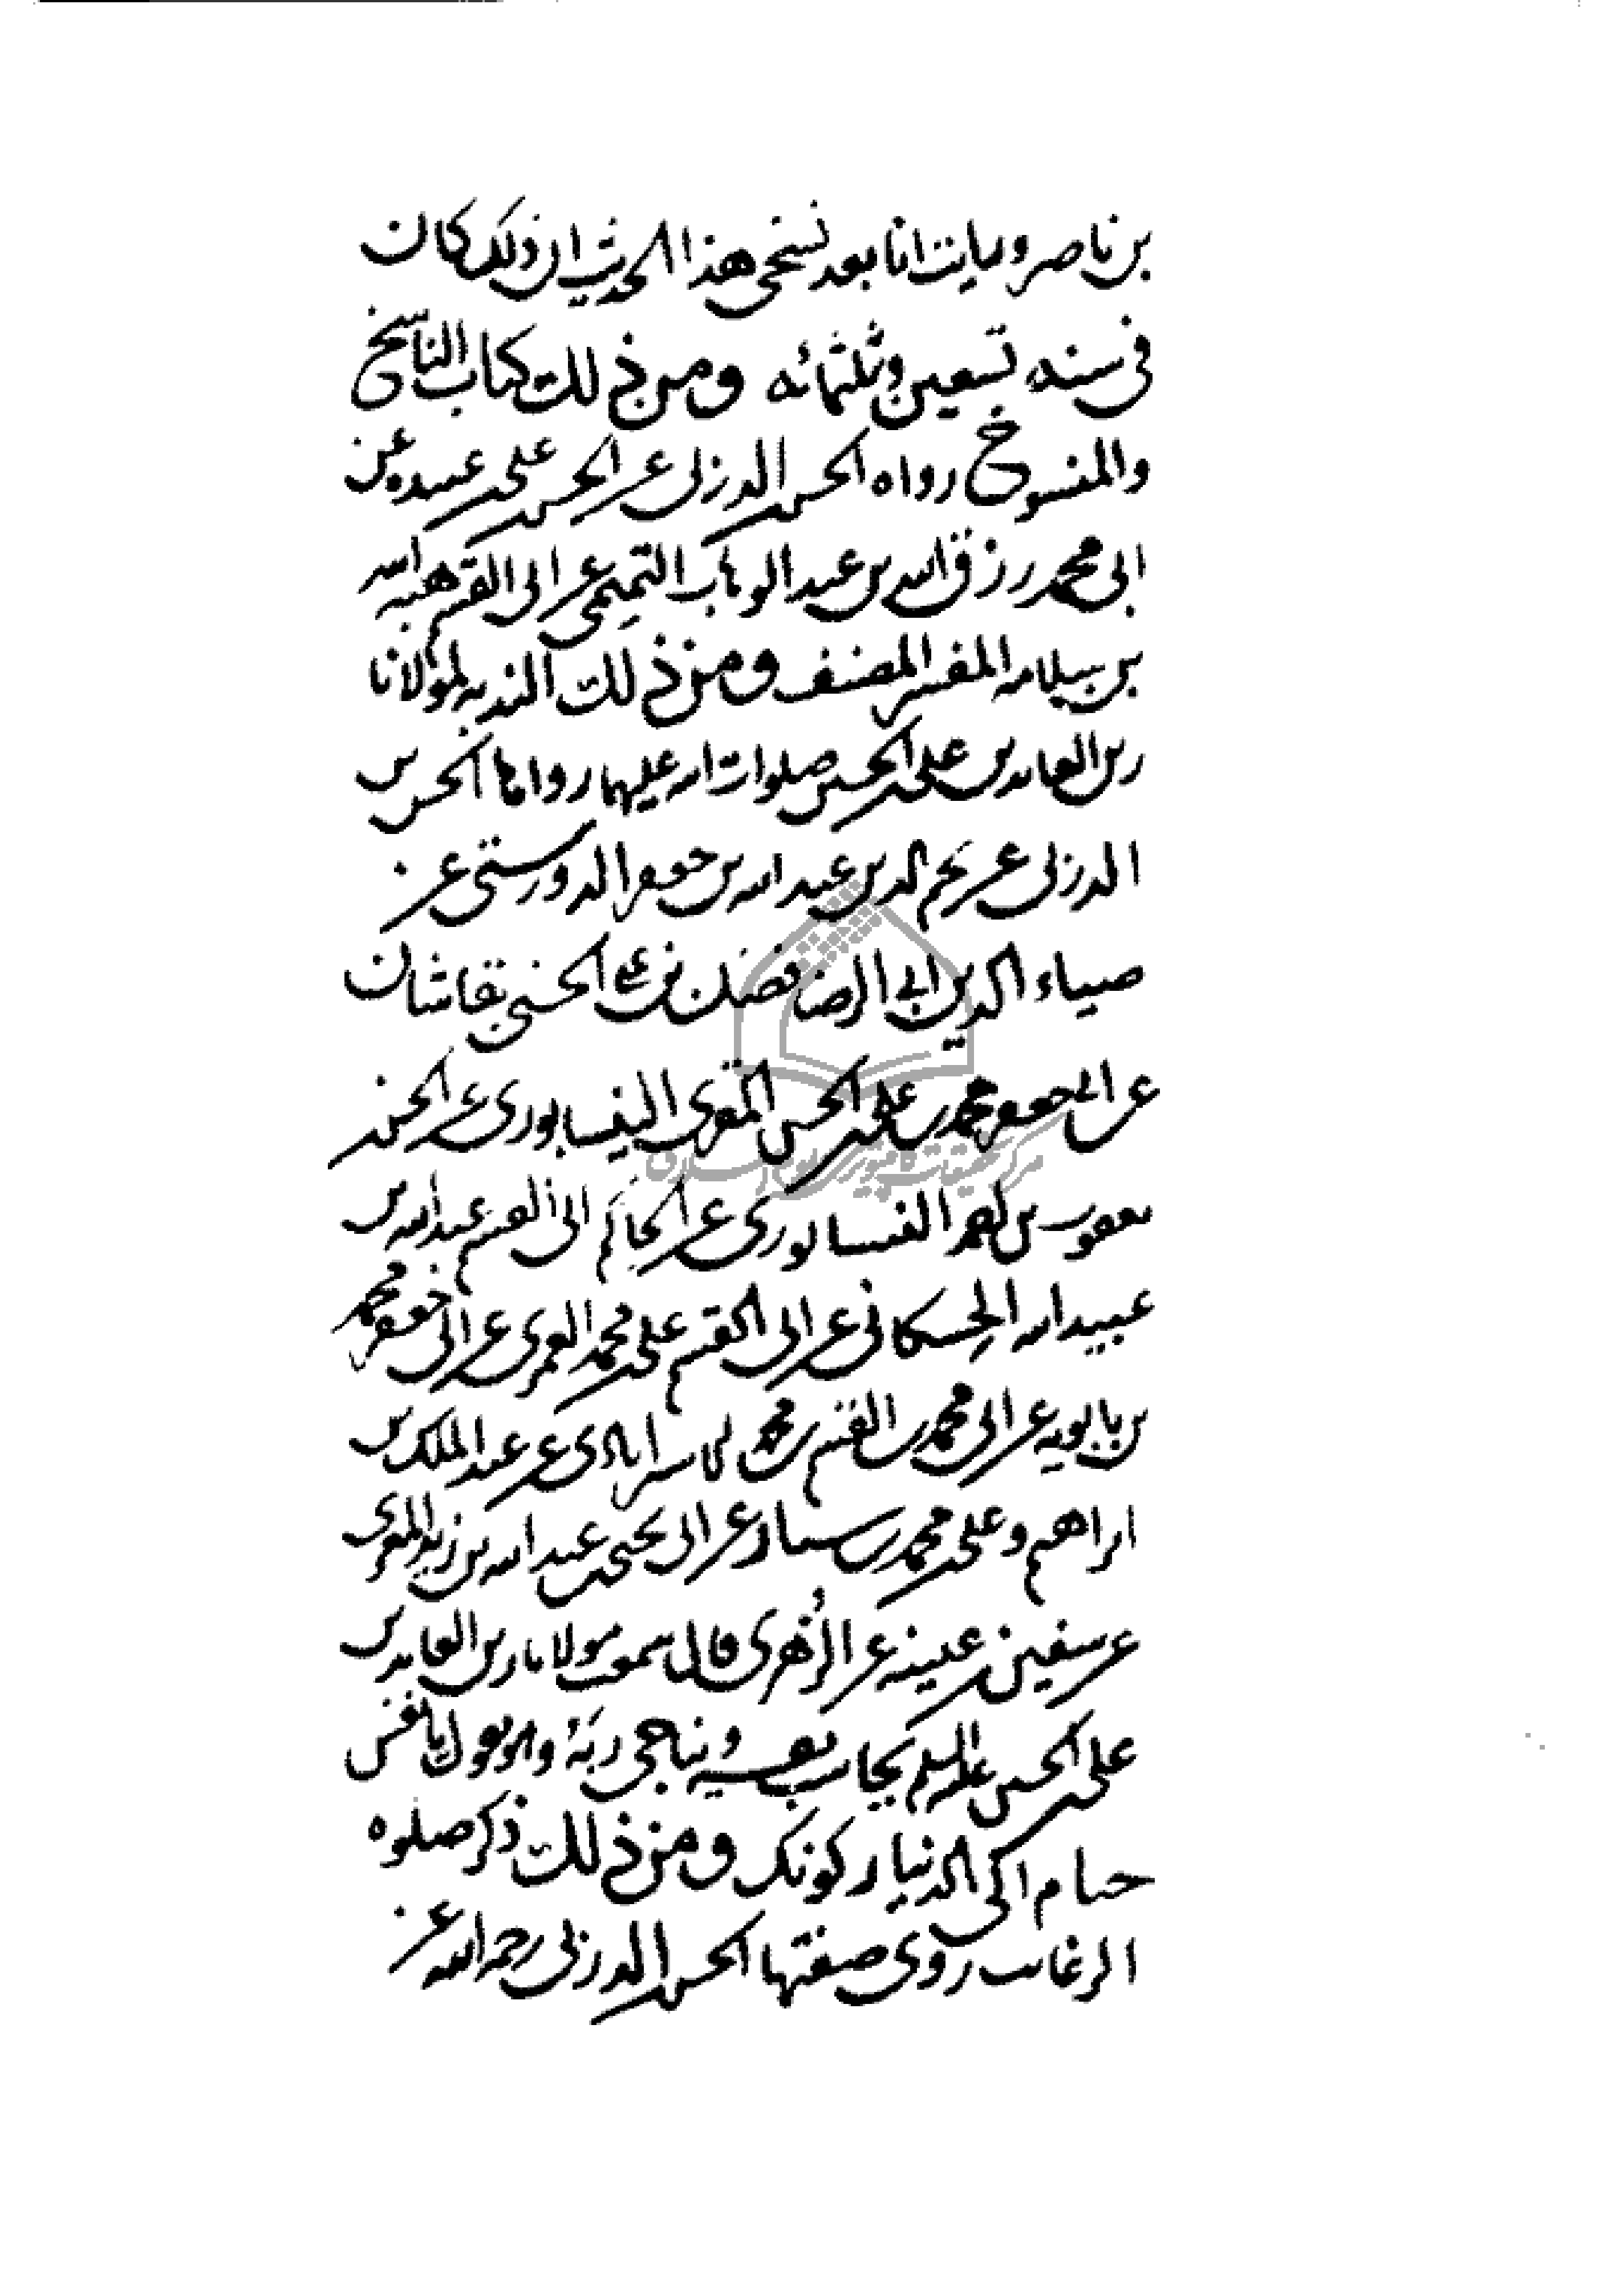 بن ناصر ورايت انا بعد نسخى هذا الحديث ان ذلك كان
فى سنه تسعين وثلثمائه ومن ذلك كتاب الناسخ
والمنسوخ رواه الحسن الدرزلى عن الحسن بن على بن عبيده عن
ابى محمد رزق الله بن عبد الوهاب التميمى عن ابى القسم هبه الله
بن سلامه المفسر المصنف ومن ذلك الندبه لمولانا
زين العابدين على بن الحسين صلوات الله عليهما رواها الحسن بن
الدرزلى عن نجم الدين عبد الله بن جعفر الدورستى عن
ضياء الدين ابى الرضا فضل بن على الحسنى بقاشان
عن ابى جعفر محمد بن على بن الحسن المقرى النيسابورى عن الحسن بن
يعقوب بن احمد النيسابورى عن الحاكم ابى القسم عبد الله بن
عبيد الله الحسكانى عن ابى القسم على بن محمد العمرى عن ابى جعفر محمد
بن بابويه عن ابى محمد بن القسم بن محمد الاسترابادى عن عبد الملك بن
ابراهيم وعلى بن محمد بن سنان عن ابى يحيى بن عبد الله بن زيد المقرى
عن سفين بن عيينه عن الزهرى قال سمعت مولانا زين العابدين
على بن الحسين عليه السلم يحاسب نفسه ويناجى ربه وهو يقول يا نفس
حتام الى الدنيا ركونك ومن ذلك ذكر صلوه
الرغايب روى صفتها الحسن الدرزلى رحمه الله عن